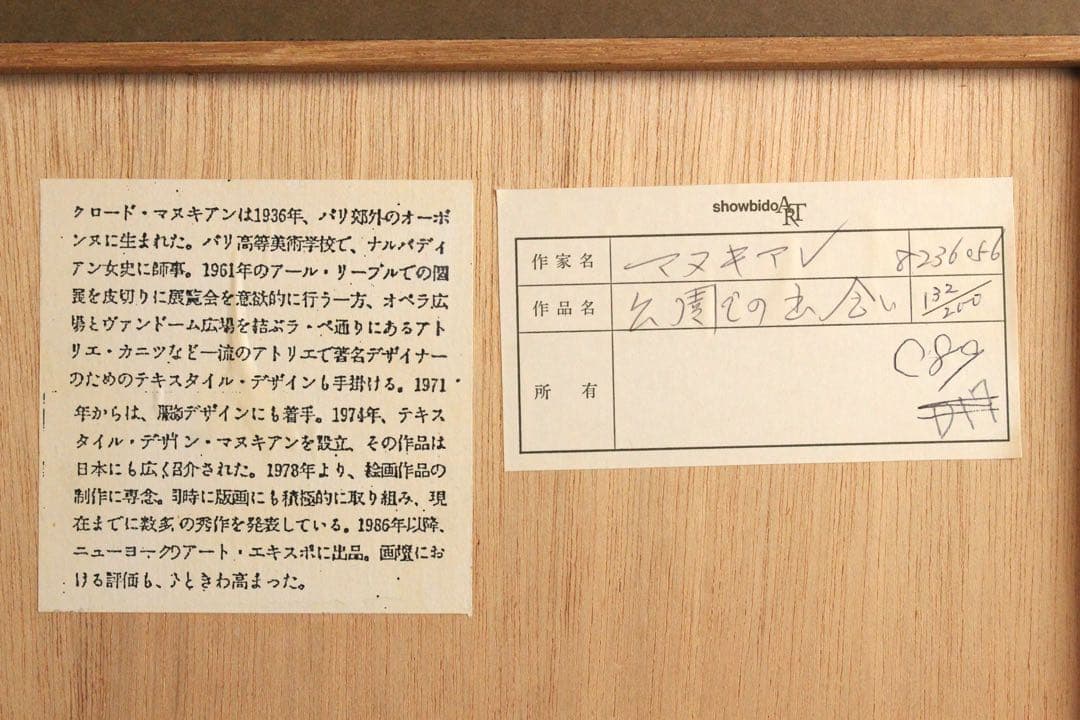 クロード・マヌキアンは1936年、パリ郊外のオーボ
ンヌに生まれた。パリ高等美術学校で、ナルバディ
アン女史に師事。1961年のアール・リーブルでの個
展を皮切りに展覧会を意欲的に行う一方、オペラ広
場とヴァンドーム広場を結ぶラ・ペ通りにあるアト
リエ・カニツなど一流のアトリエで著名デザイナー
のためのテキスタイル・デザインも手掛ける。1971
年からは、服飾デザインにも着手。1974年、テキス
タイル・デザイン・マヌキアンを設立、その作品は
日本にも広く紹介された。1978年より、絵画作品の
制作に専念。同時に版画にも積極的に取り組み、現
在までに数多の秀作を発表している。1986年以降、
ニューヨークのアート・エキスポに出品。画壇にお
ける評価も、ひときわ高まった。
showbido ART
作家名 マヌキアン 8236056
作品名 公園での出会い 132/200
所有
C89